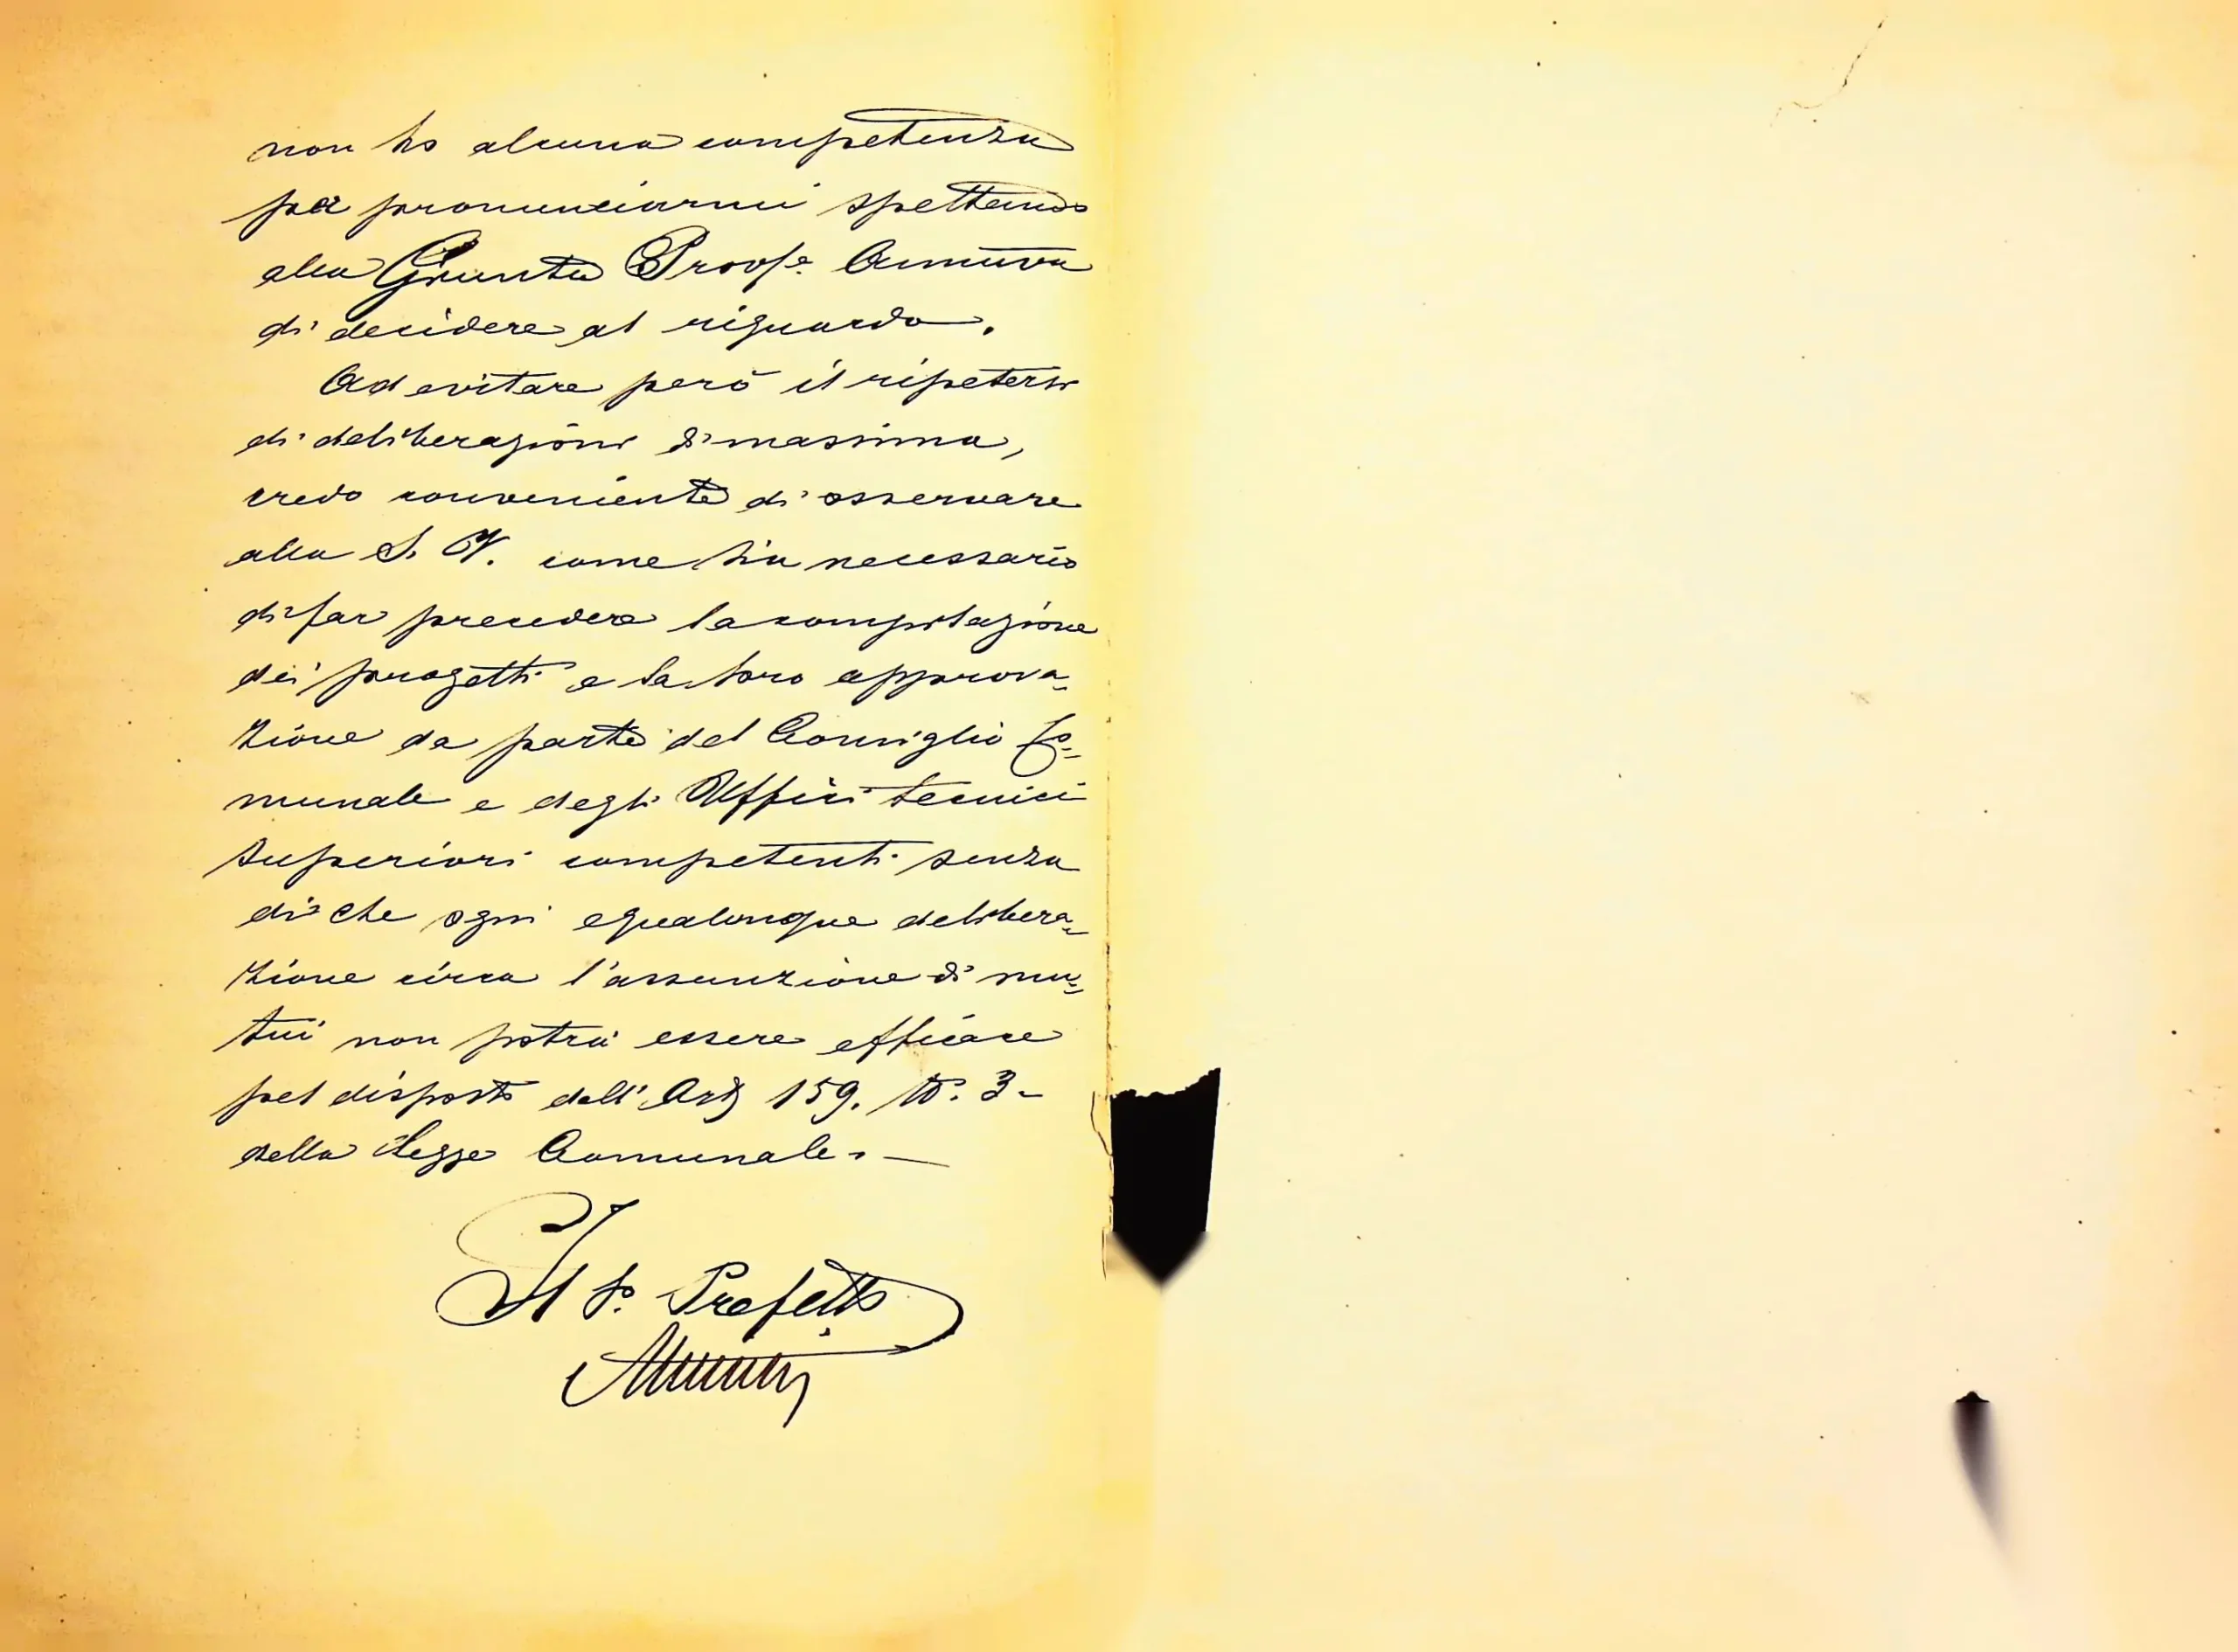 non ho alcuna competenza
per pronunciarmi spettando
alla Giunta Provle. Ammtva
di decidere al riguardo.
Ad evitare però il ripetersi
di deliberazioni di massima,
credo conveniente di osservare
alla S. V. come sia necessario
di far precedere la compilazione
dei progetti e la loro approva-
zione da parte del Consiglio Co-
munale e degli Uffici tecnici
superiori competenti senza
di che ogni e qualunque delibera-
zione circa l'assunzione di mu-
tui non potrà essere efficace
pel disposto dell'Art 159. No. 3-
della Legge Comunale. —
Il S. Prefetto